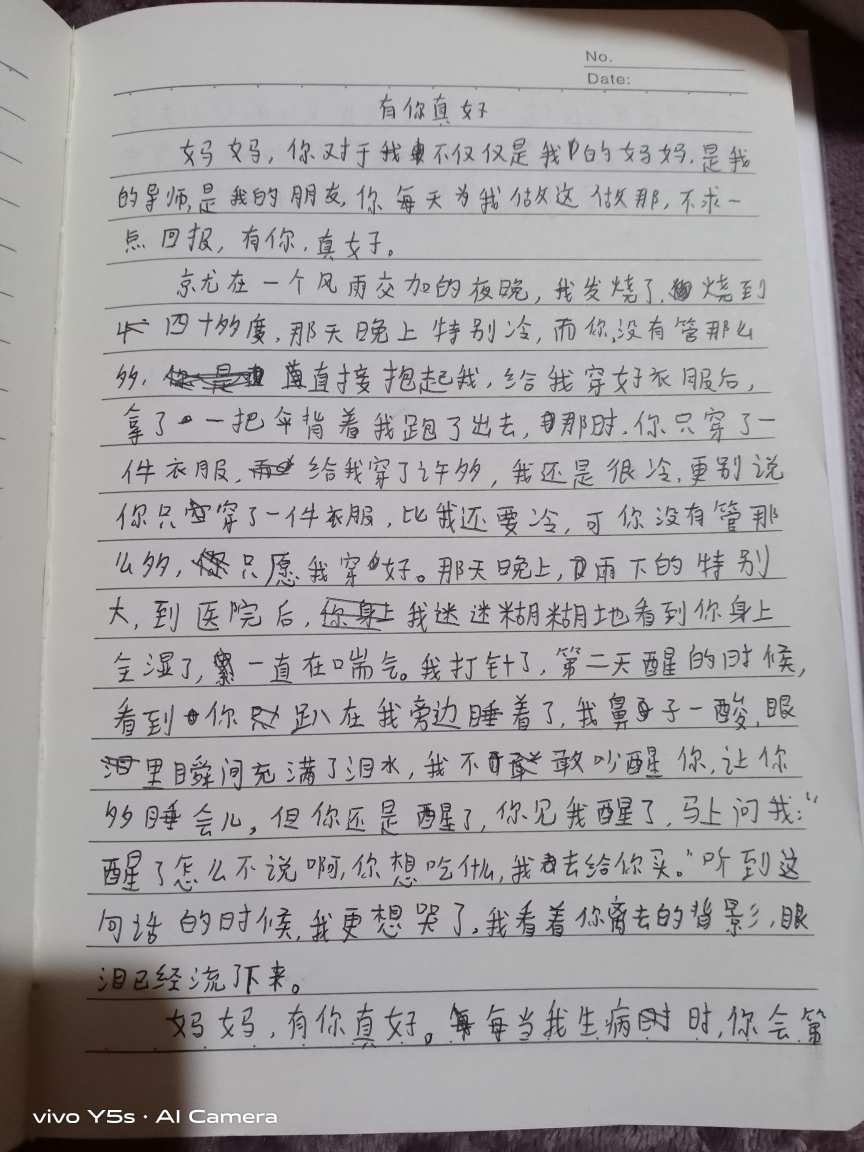 No.
Date:
有你真好
妈妈，你对于我不仅仅是我的妈妈，是我
的导师，是我的朋友，你每天为我做这做那，不求一
点回报，有你，真好。
京尤在一个风雨交加的夜晚，我发烧了，烧到
四十多度，那天晚上特别冷，而你没有管那么
多，直接抱起我，给我穿好衣服后，
拿了一把伞背着我跑了出去，那时，你只穿了一
件衣服，给我穿了许多，我还是很冷，更别说
你只穿了一件衣服，比我还要冷，可你没有管那
么多，只愿我穿好。那天晚上，雨下的特别
大，到医院后，我迷迷糊糊地看到你身上
全湿了，一直在喘气。我打针了，第二天醒的时候，
看到你趴在我旁边睡着了，我鼻子一酸，眼
里瞬间充满了泪水，我不敢吵醒你，让你
多睡会儿，但你还是醒了，你见我醒了，马上问我：“
醒了怎么不说啊，你想吃什么，我去给你买。”听到这
句话的时候，我更想哭了，我看着你离去的背影，眼
泪已经流了下来。
妈妈，有你真好。每当我生病时，你会第
vivo Y5s · AI Camera